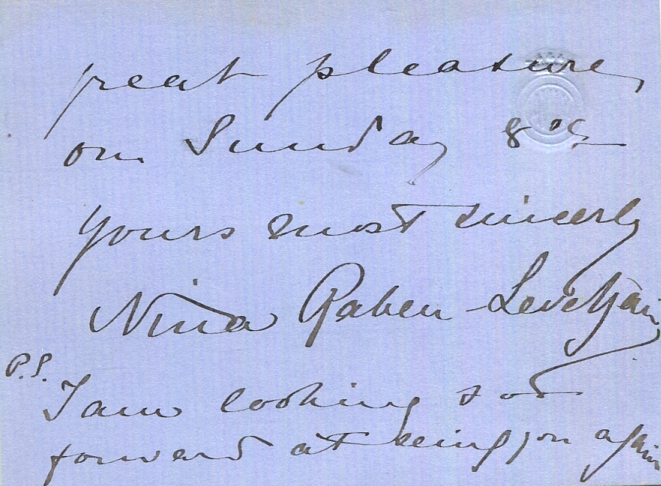 great pleasure,
on Sunday 8th
yours most sincerely
Nina Raben-Levetzau
P.S.
I am looking so
forward at seeing you again